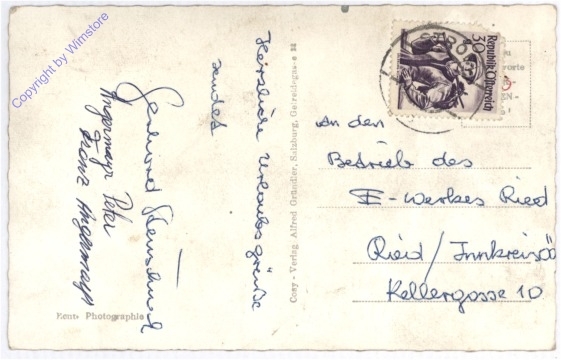 Copyright by Wimstore
Herzliche Urlaubsgrüße
sendet
Gerhard
Angermayr Peter
Franz Angermayr
Echte Photographie
Cosy - Verlag Alfred Gründler, Salzburg, Getreidegasse 22
Republik Österreich
30
An den
Betrieb des
E-Werkes Ried
Ried/Innkreis OÖ
Kellergasse 10